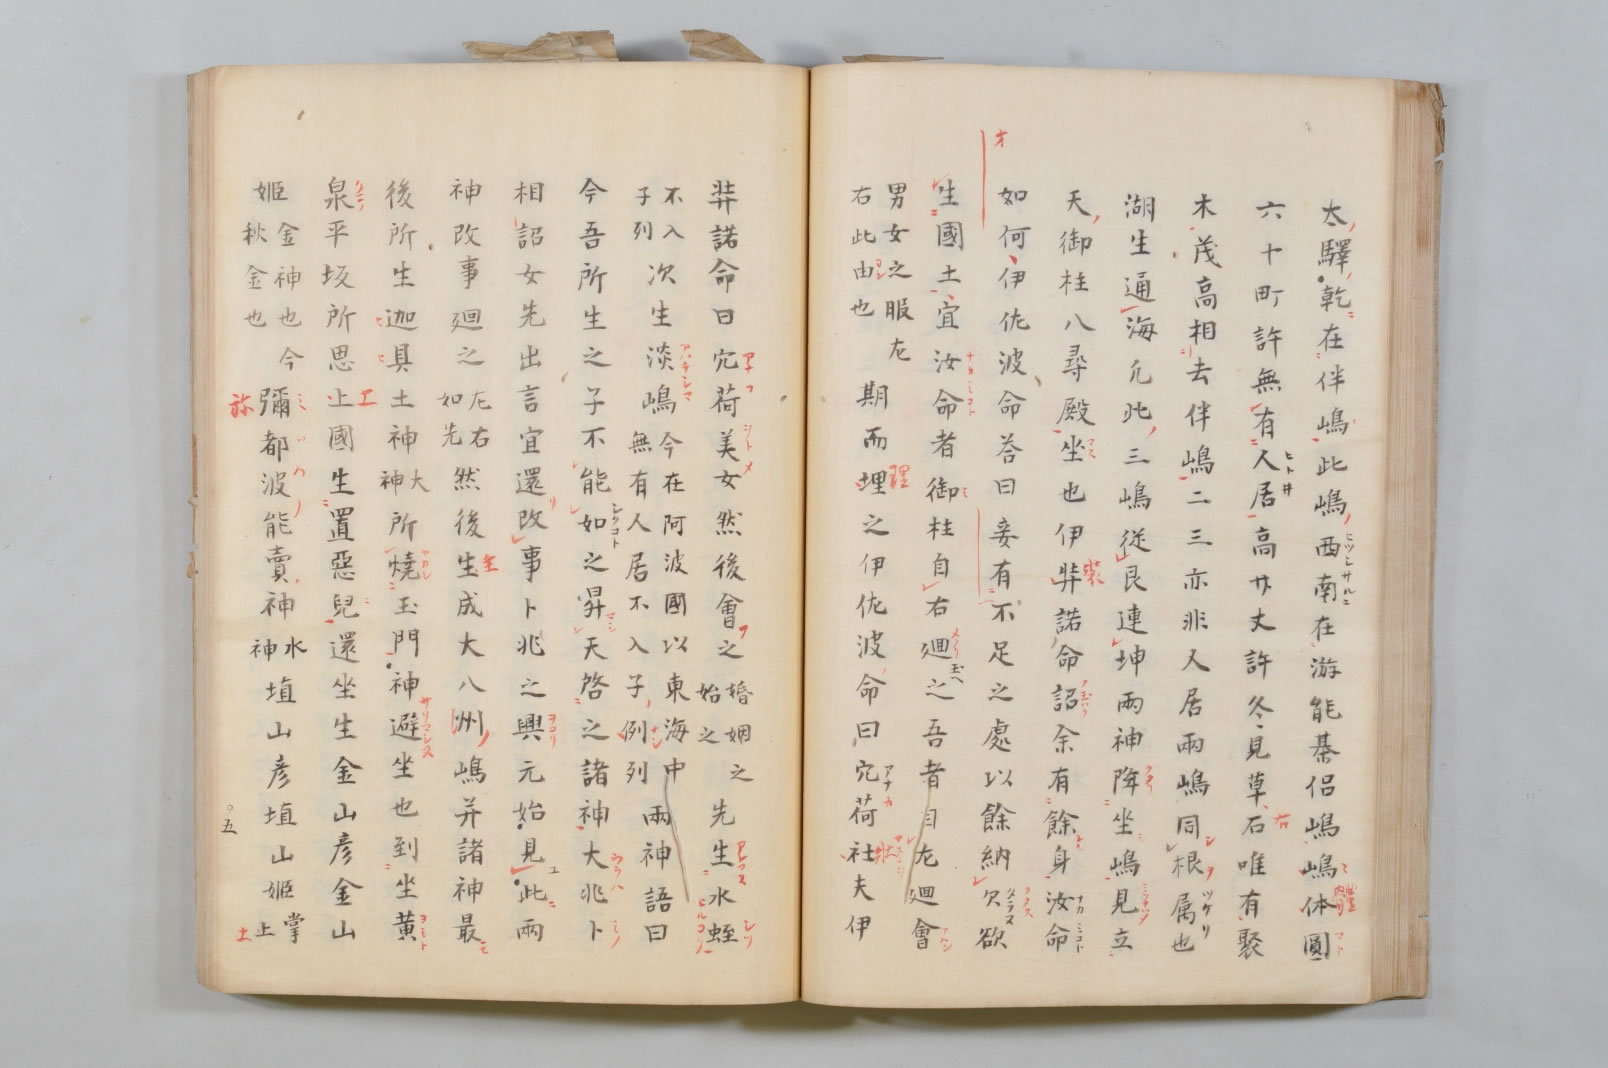 太驛乾在伴嶋此嶋西南在游能碁侶嶋嶋体圓
六十町許無有人居高廿丈許冬見草石唯有聚
木茂高相去伴嶋二三亦非人居兩嶋同根属也
湖生通海凢此三嶋従艮連坤兩神降坐嶋見立
天御柱八尋殿坐也伊弉諾命詔余有餘身汝命
如何伊佐波命荅曰妾有不足之處以餘納欠欲
生國土宜汝命者御柱自右廻之吾者自左廻會
男女之服左
右此由也
期而埋之伊佐波命曰穴荷社夫伊
弉諾命曰穴荷美女然後會之
婚姻之
始之
先生水蛭
不入
子列
次生淡嶋
今在阿波國以東海中
無有人居不入子例列
兩神語曰
今吾所生之子不能如之昇天啓之諸神大兆卜
相詔女先出言宜還改事卜兆之興元始見此兩
神改事廻之
左右
如先
然後生成大八洲嶋并諸神最
後所生迦具土神
大
神
所燒玉門神避坐也到坐黄
泉平坂所思上國生置惡兒還坐生金山彦金山
姫
金神也
秋金也
今彌都波能賣神
水
神
埴山彦埴山姫
掌
上
五